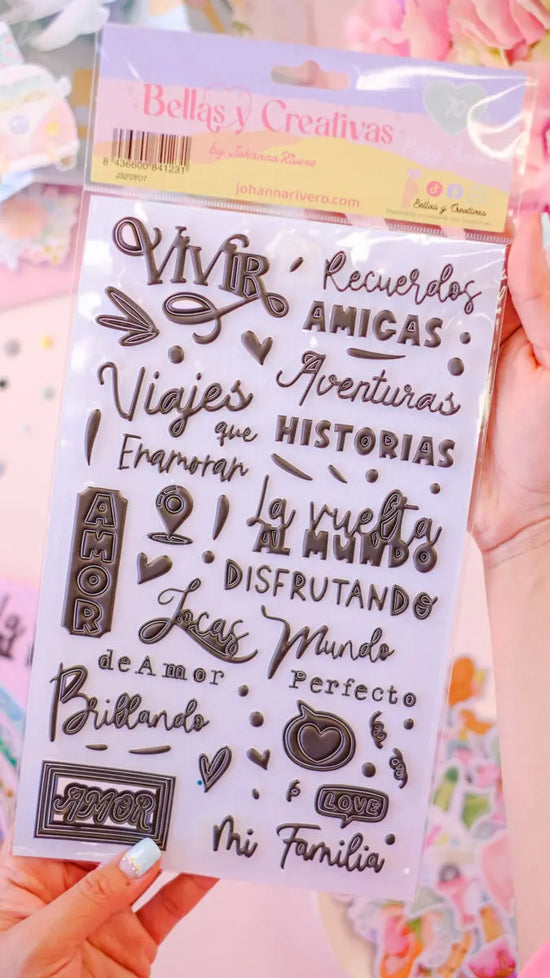 Bellas y Creativas
by Johanna Rivero
8 436600 841231
JRPUF07
johannarivero.com
Bellas y Creativas
70
VIVIR
Recuerdos
AMIGAS
Viajes
Aventuras
que
HISTORIAS
Enamoran
AMOR
La vuelta
AL MUNDO
DISFRUTANDO
Locas
Mundo
de Amor
Perfecto
Brillando
AMOR
LOVE
Mi Familia